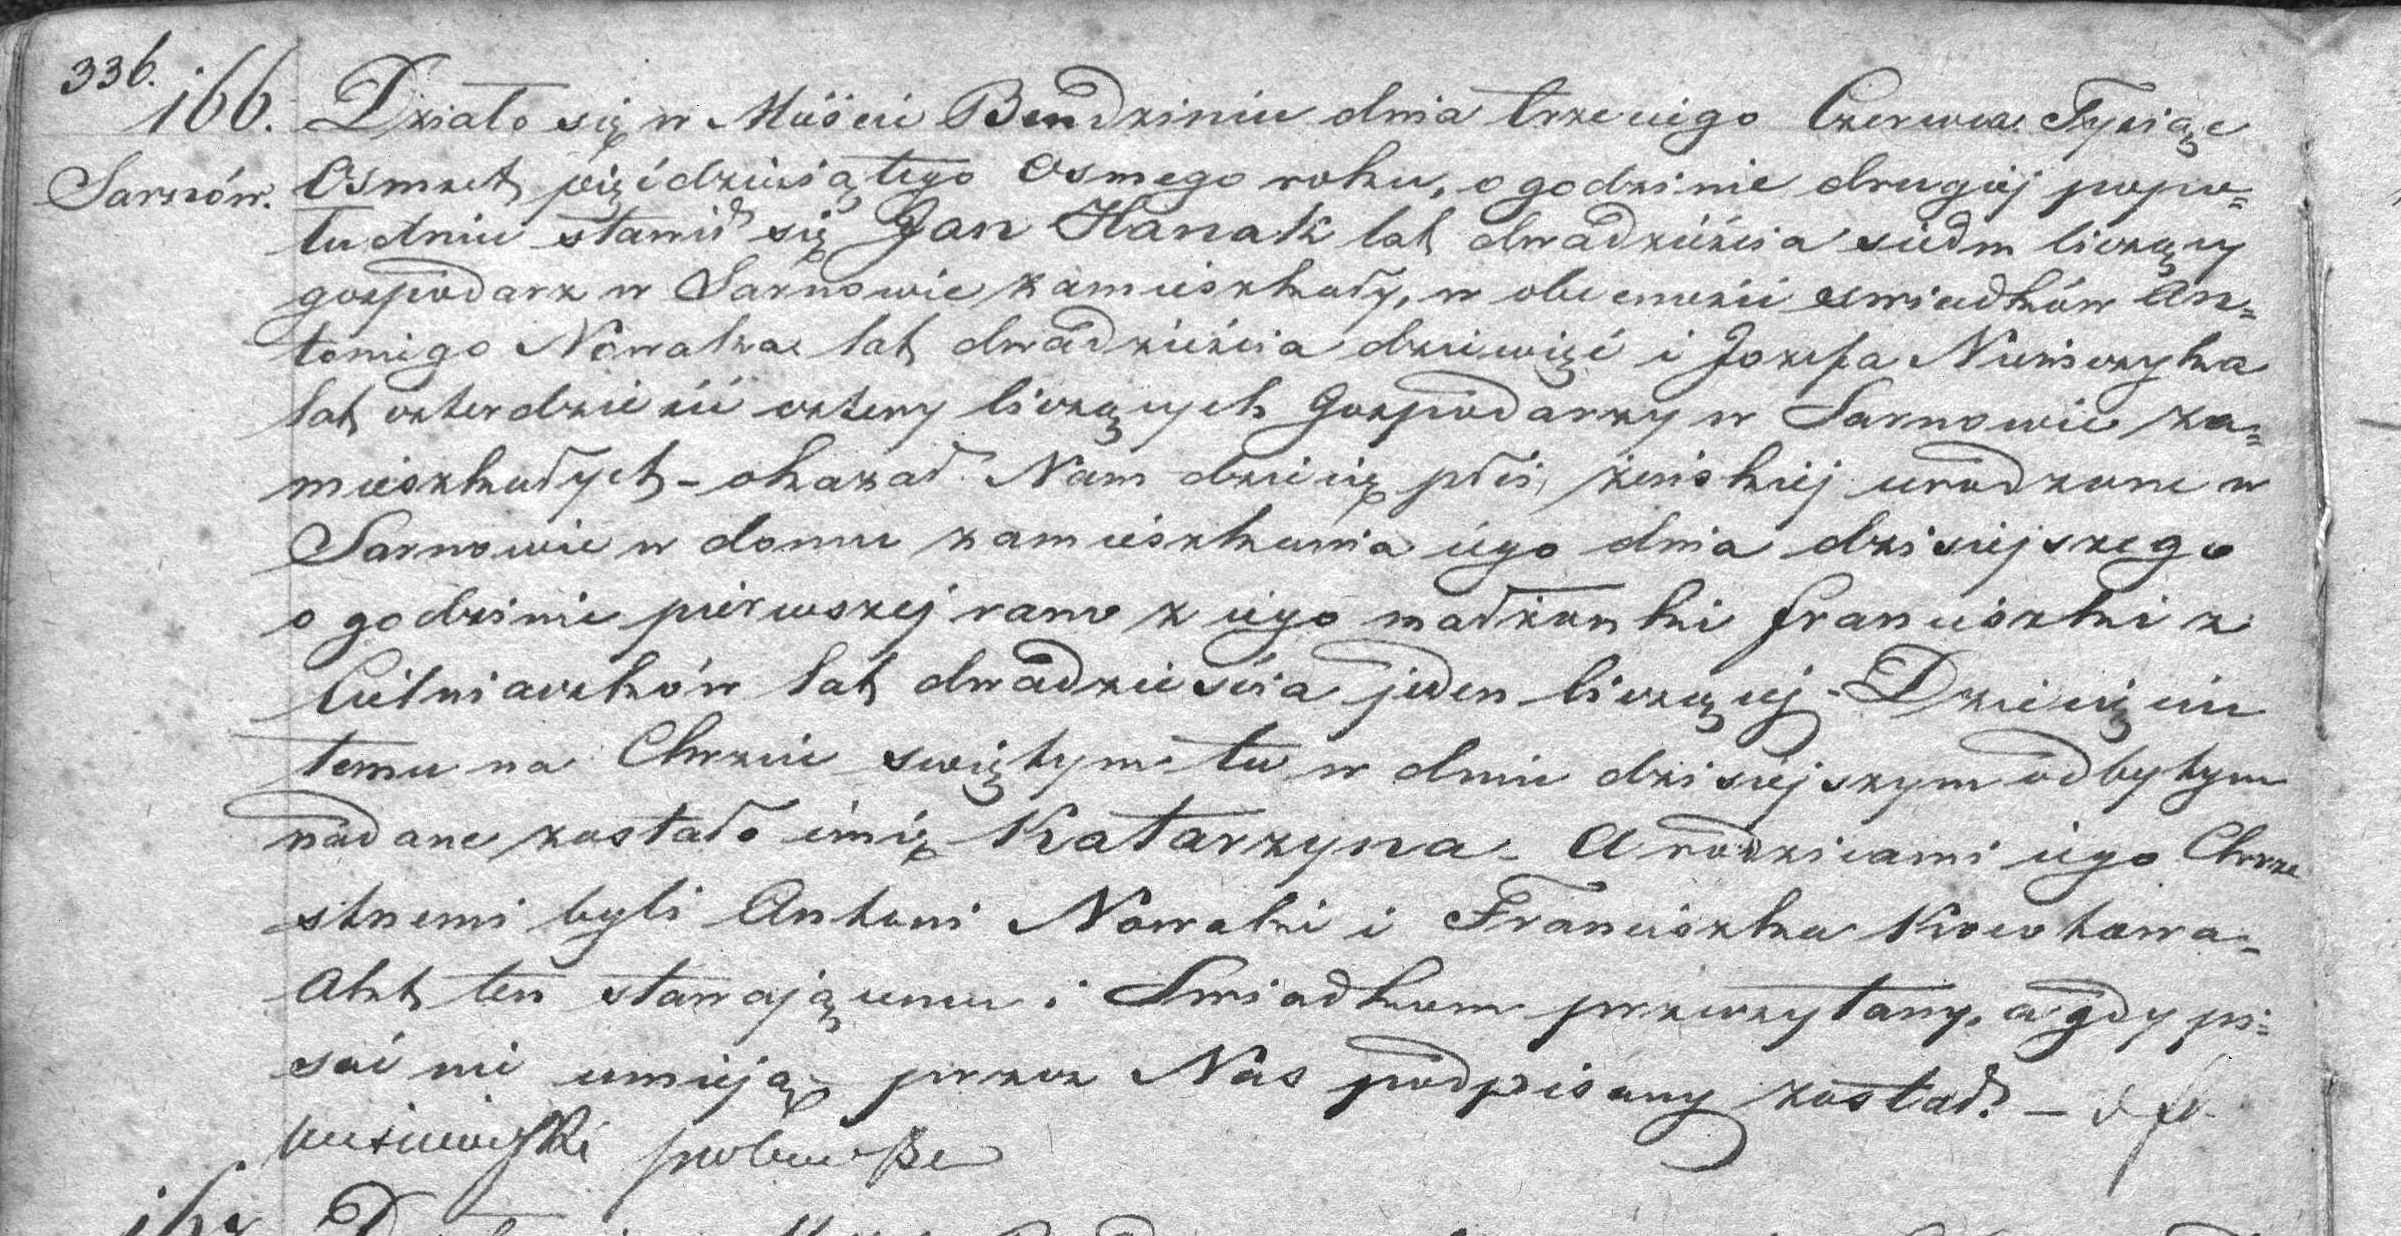 336.
166. Działo się w Mieście Bendzinie dnia trzeciego Czerwca Tysiąc
Sarnów. Osmset pięćdziesiątego Osmego roku, o godzinie drugiej popo=
łudniu stawił się Jan Hanak lat dwadzieścia siedm liczący
gospodarz w Sarnowie zamieszkały, w obecności swiadków An=
toniego Nowaka lat dwadzieścia dziewięć i Jozefa
lat czterdzieści cztery liczących Gospodarzy w Sarnowie za=
mieszkałych - okazał Nam dziecię płci żeńskiej urodzone w
Sarnowie w domu zamieszkania iego dnia dzisiejszego
o godzinie pierwszej rano z iego małżonki Franciszki z
lat dwadzieścia jeden liczącej - Dziecięciu
temu na Chrzcie swiętym tu w dniu dzisiejszym odbytym
nadane zostało imię Katarzyna - A rodzicami iego Chrze
stnemi byli Antoni Nowak i i Franciszka
Akt ten stawającemu i Swiadkom przeczytany, a gdy pi=
sać nie umieją przez Nas podpisany został. -
proboszcz